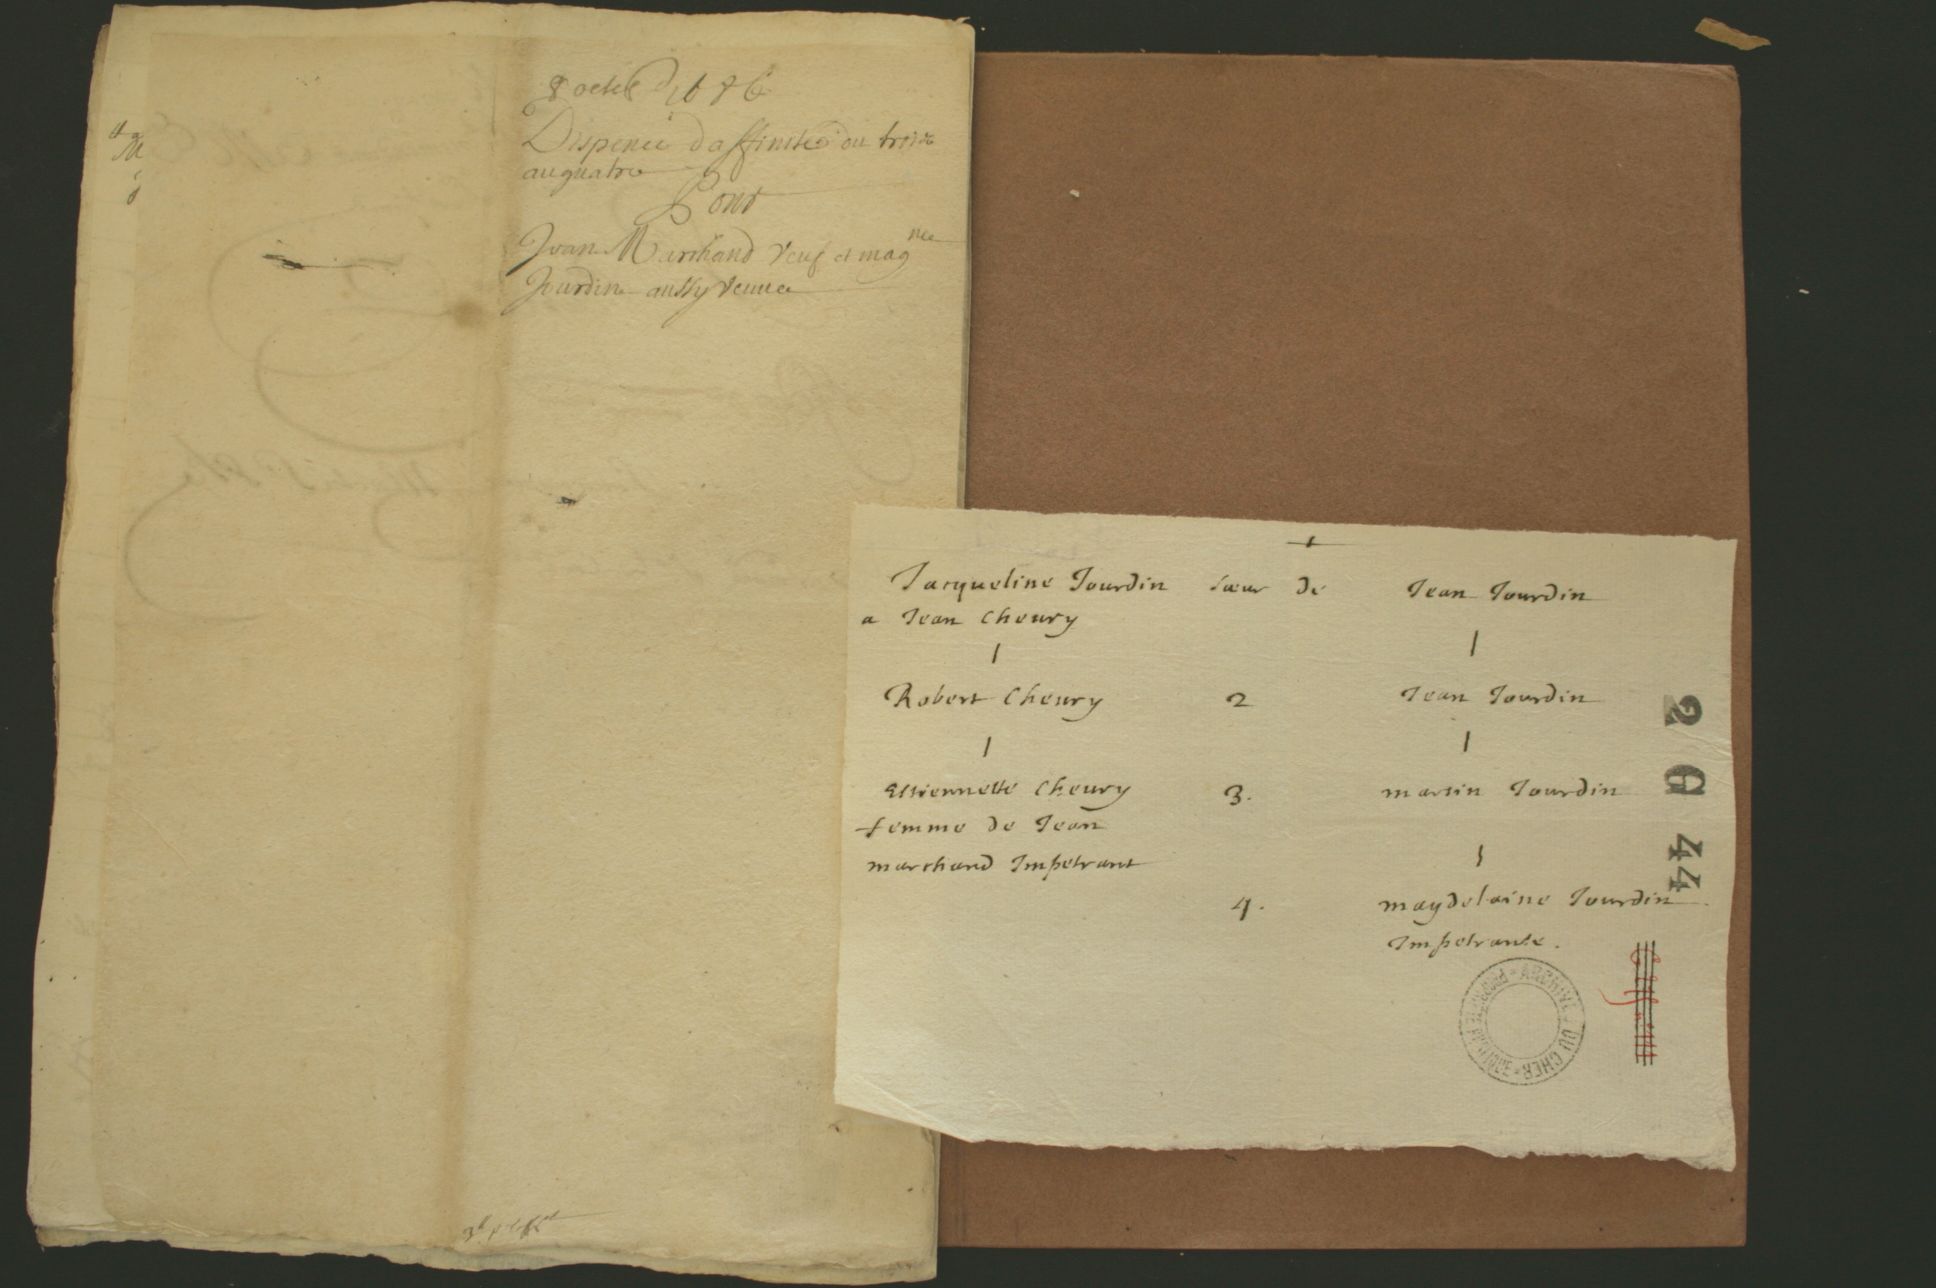 8 octob 1686
Dispence daffinité du trois
au quatre
Pour
Jean Marchand veuf et mag.ne
Jourdin aussy veuve
1
Jacqueline Jourdin sœur de Jean Jourdin
a Jean Cheury
Robert Cheury 2 Jean Jourdin
Estiennette Cheury 3. martin Jourdin
femme de Jean
marchand Impetrant
4. magdelaine Jourdin
Impetrante.
2 G 44
ARCHIVES DU CHER * PROPRIÉTÉ PUBLIQUE *